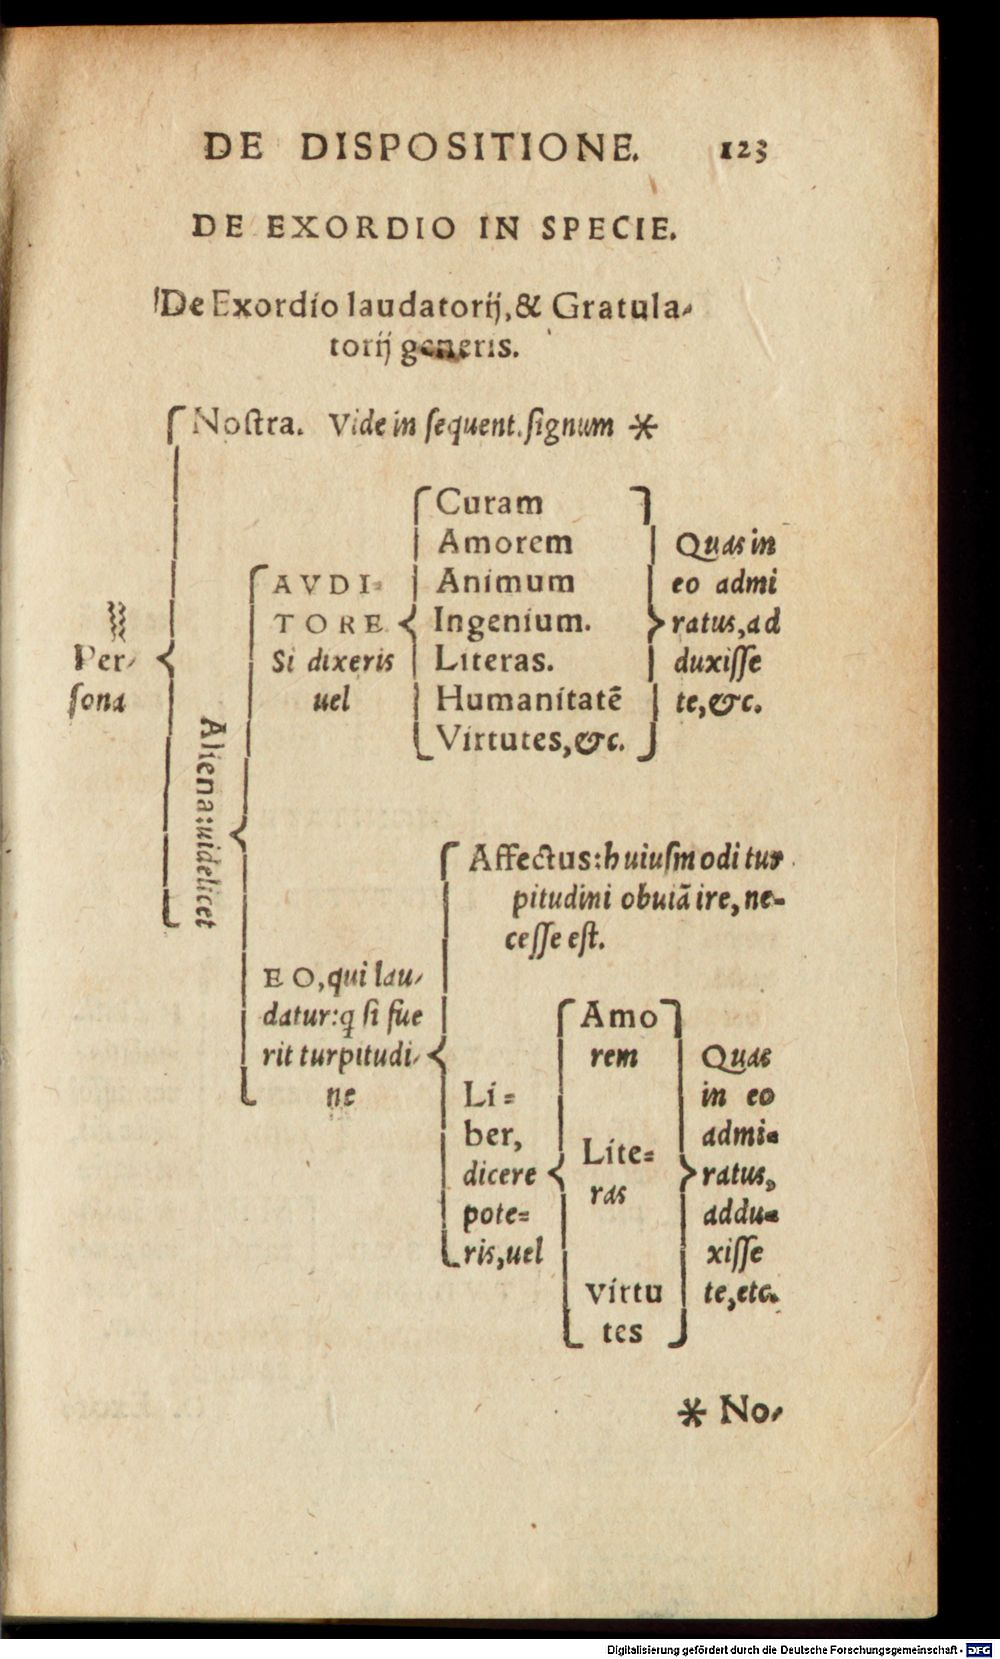 DE DISPOSITIONE. 123
DE EXORDIO IN SPECIE.
De Exordio laudatorij, & Gratula-
torij generis.
Noſtra. Vide in ſequent. ſignum *
Per-
ſona
Aliena: uidelicet
AVDI=
TORE
Si dixeris
uel
Curam
Amorem
Animum
Ingenium.
Literas.
Humanitatē
Virtutes, &c.
Quas in
eo admi
ratus, ad
duxiſſe
te, &c.
EO, qui lau-
datur: q ſi fue
rit turpitudi-
ne
Affectus: huiuſmodi tur
pitudini obuiā ire, ne-
ceſſe eſt.
Li=
ber,
dicere
pote=
ris, uel
Amo
rem
Lite=
ras
virtu
tes
Quas
in eo
admi=
ratus,
addu=
xiſſe
te, etc.
* No-
Digitalisierung gefördert durch die Deutsche Forschungsgemeinschaft - DFG